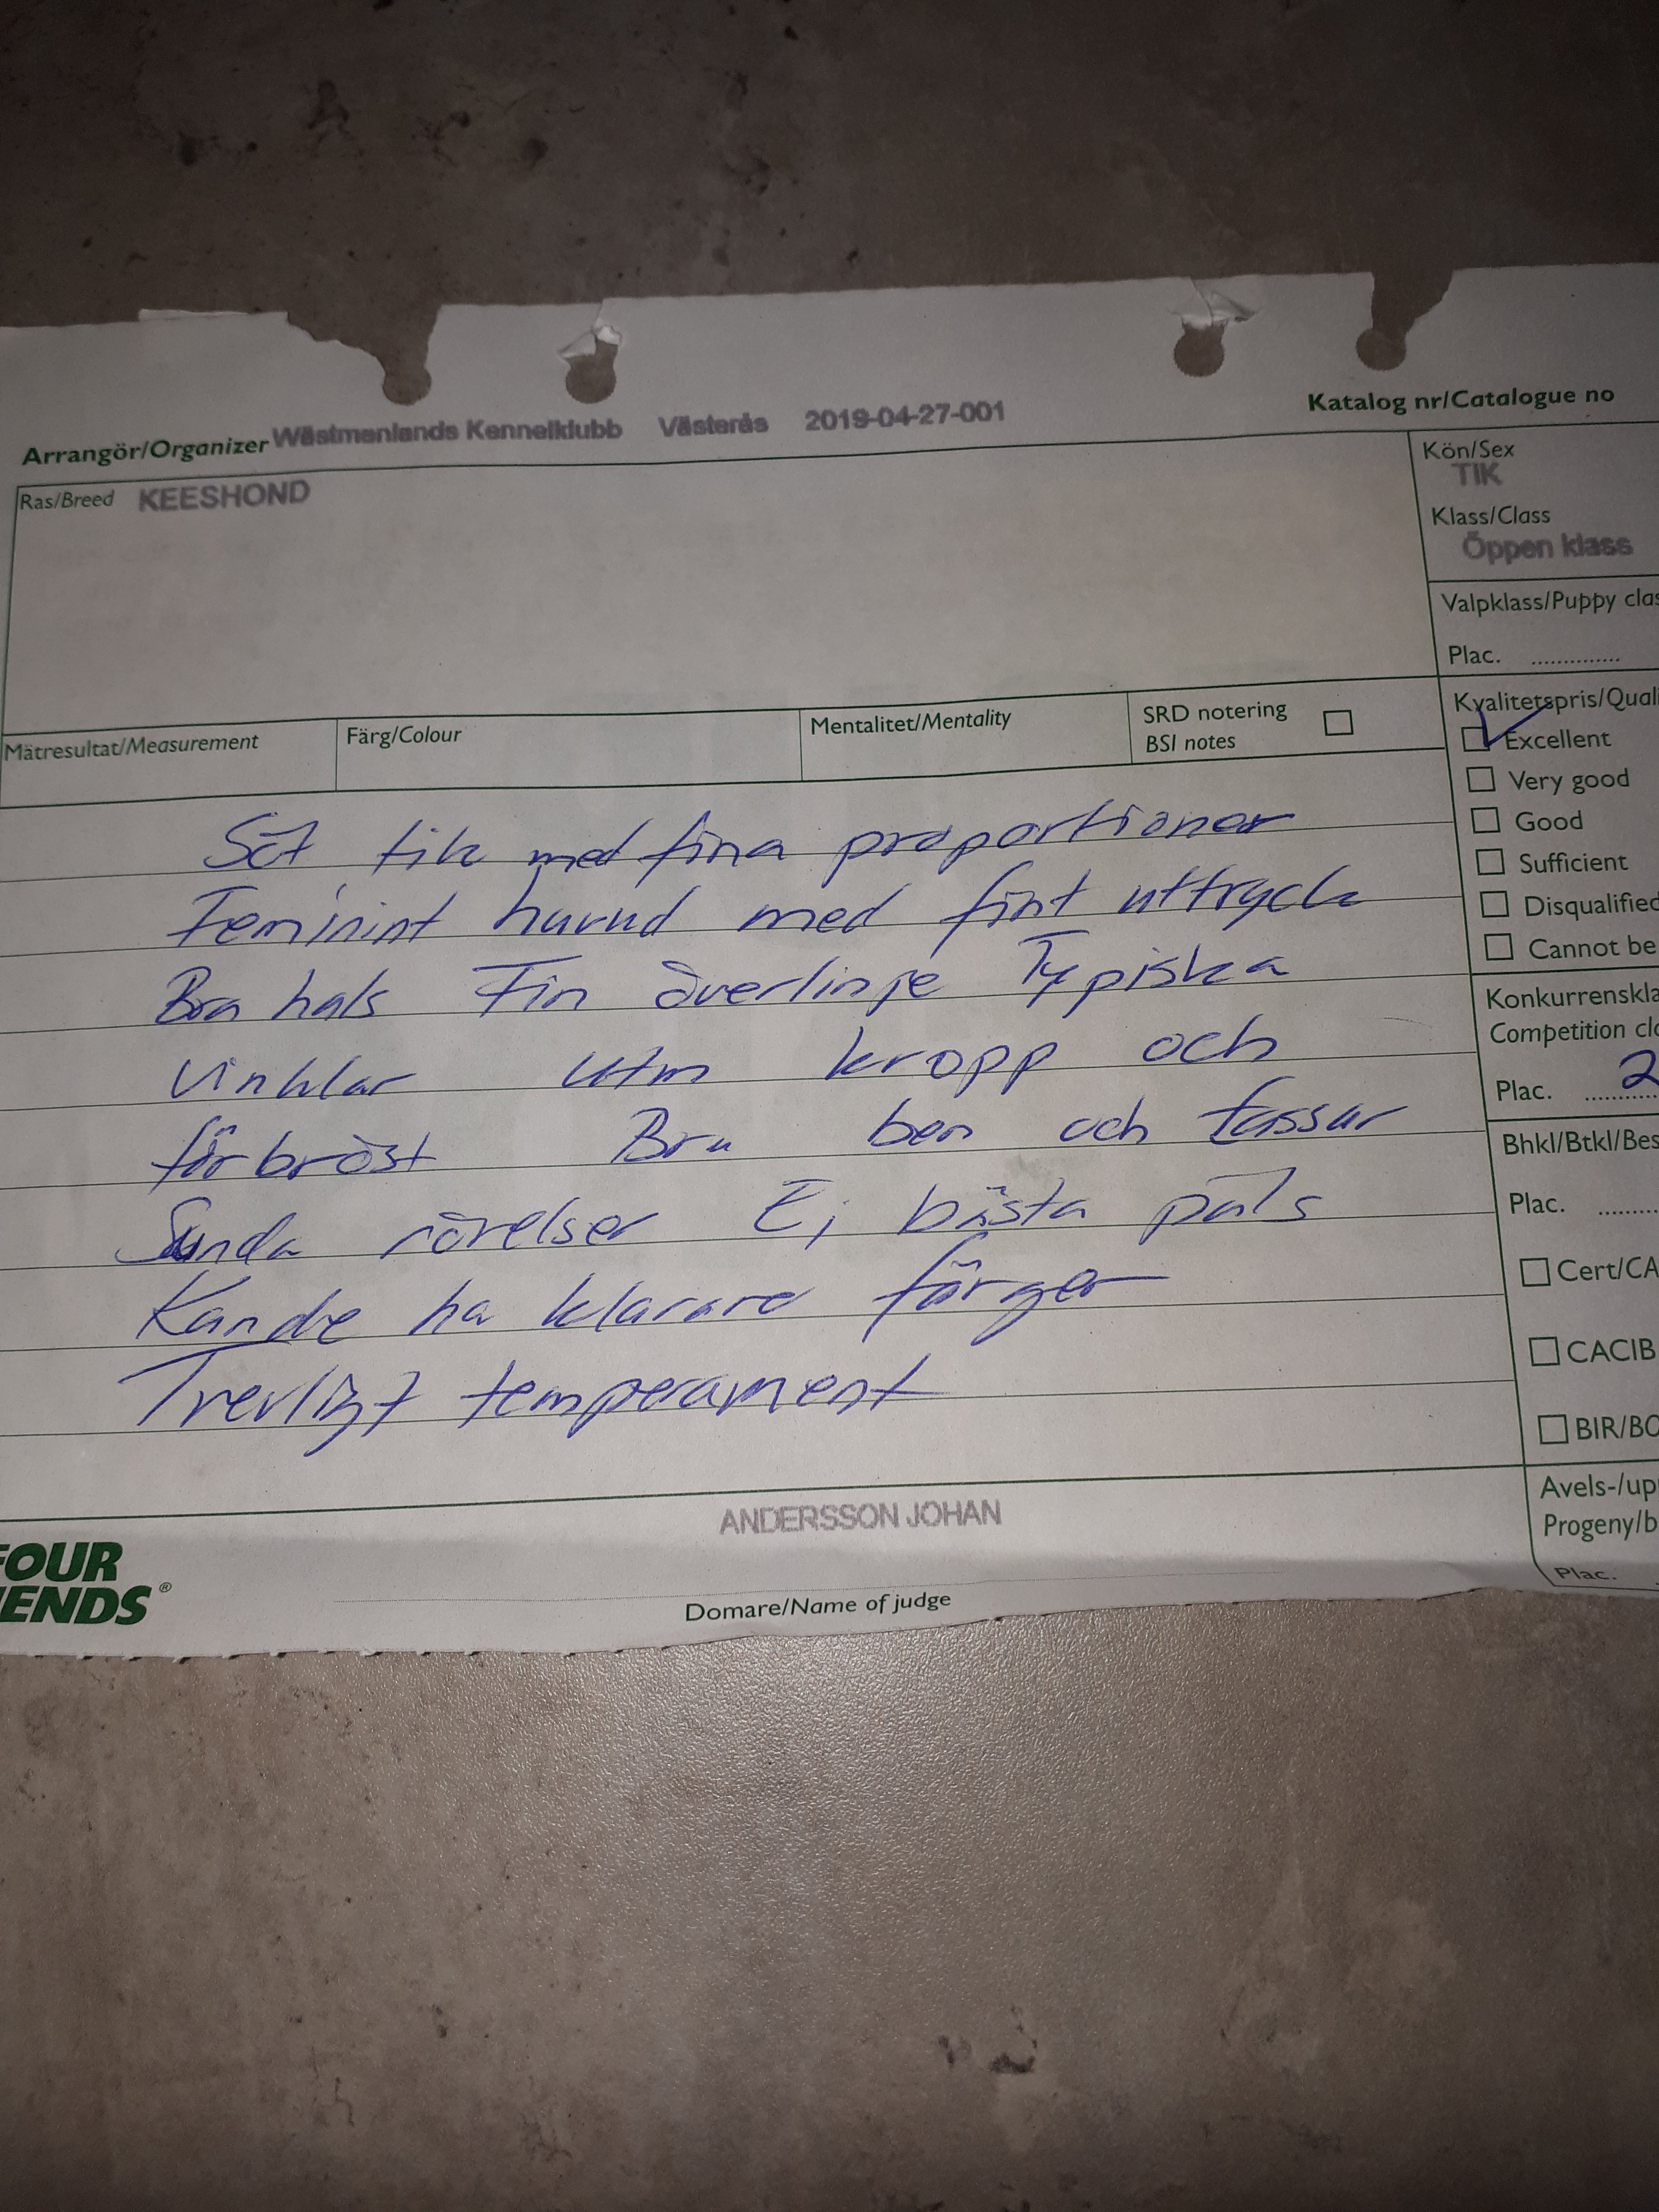 Katalog nr/Catalogue no
Arrangör/Organizer Wästmanlands Kennelklubb Västerås 2019-04-27-001
Ras/Breed KEESHOND
Kön/Sex
TIK
Klass/Class
Öppen klass
Valpklass/Puppy clas
Plac. ..............
Mätresultat/Measurement
Färg/Colour
Mentalitet/Mentality
SRD notering
BSI notes
Kvalitetspris/Quali
Excellent
Very good
Good
Sufficient
Disqualified
Cannot be
Söt tik med fina proportioner
Feminint huvud med fint uttryck
Bra hals Fin överlinje Typiska
vinklar Utm kropp och
förbröst Bra ben och tassar
Sunda rörelser Ej bästa päls
Kunde ha klarare färger
Trevligt temperament
Konkurrenskla
Competition cla
Plac. 2
Bhkl/Btkl/Bes
Plac. ........
Cert/CA
CACIB
BIR/BO
Avels-/upp
Progeny/b
Plac.
ANDERSSON JOHAN
Domare/Name of judge
FOUR
IENDS®